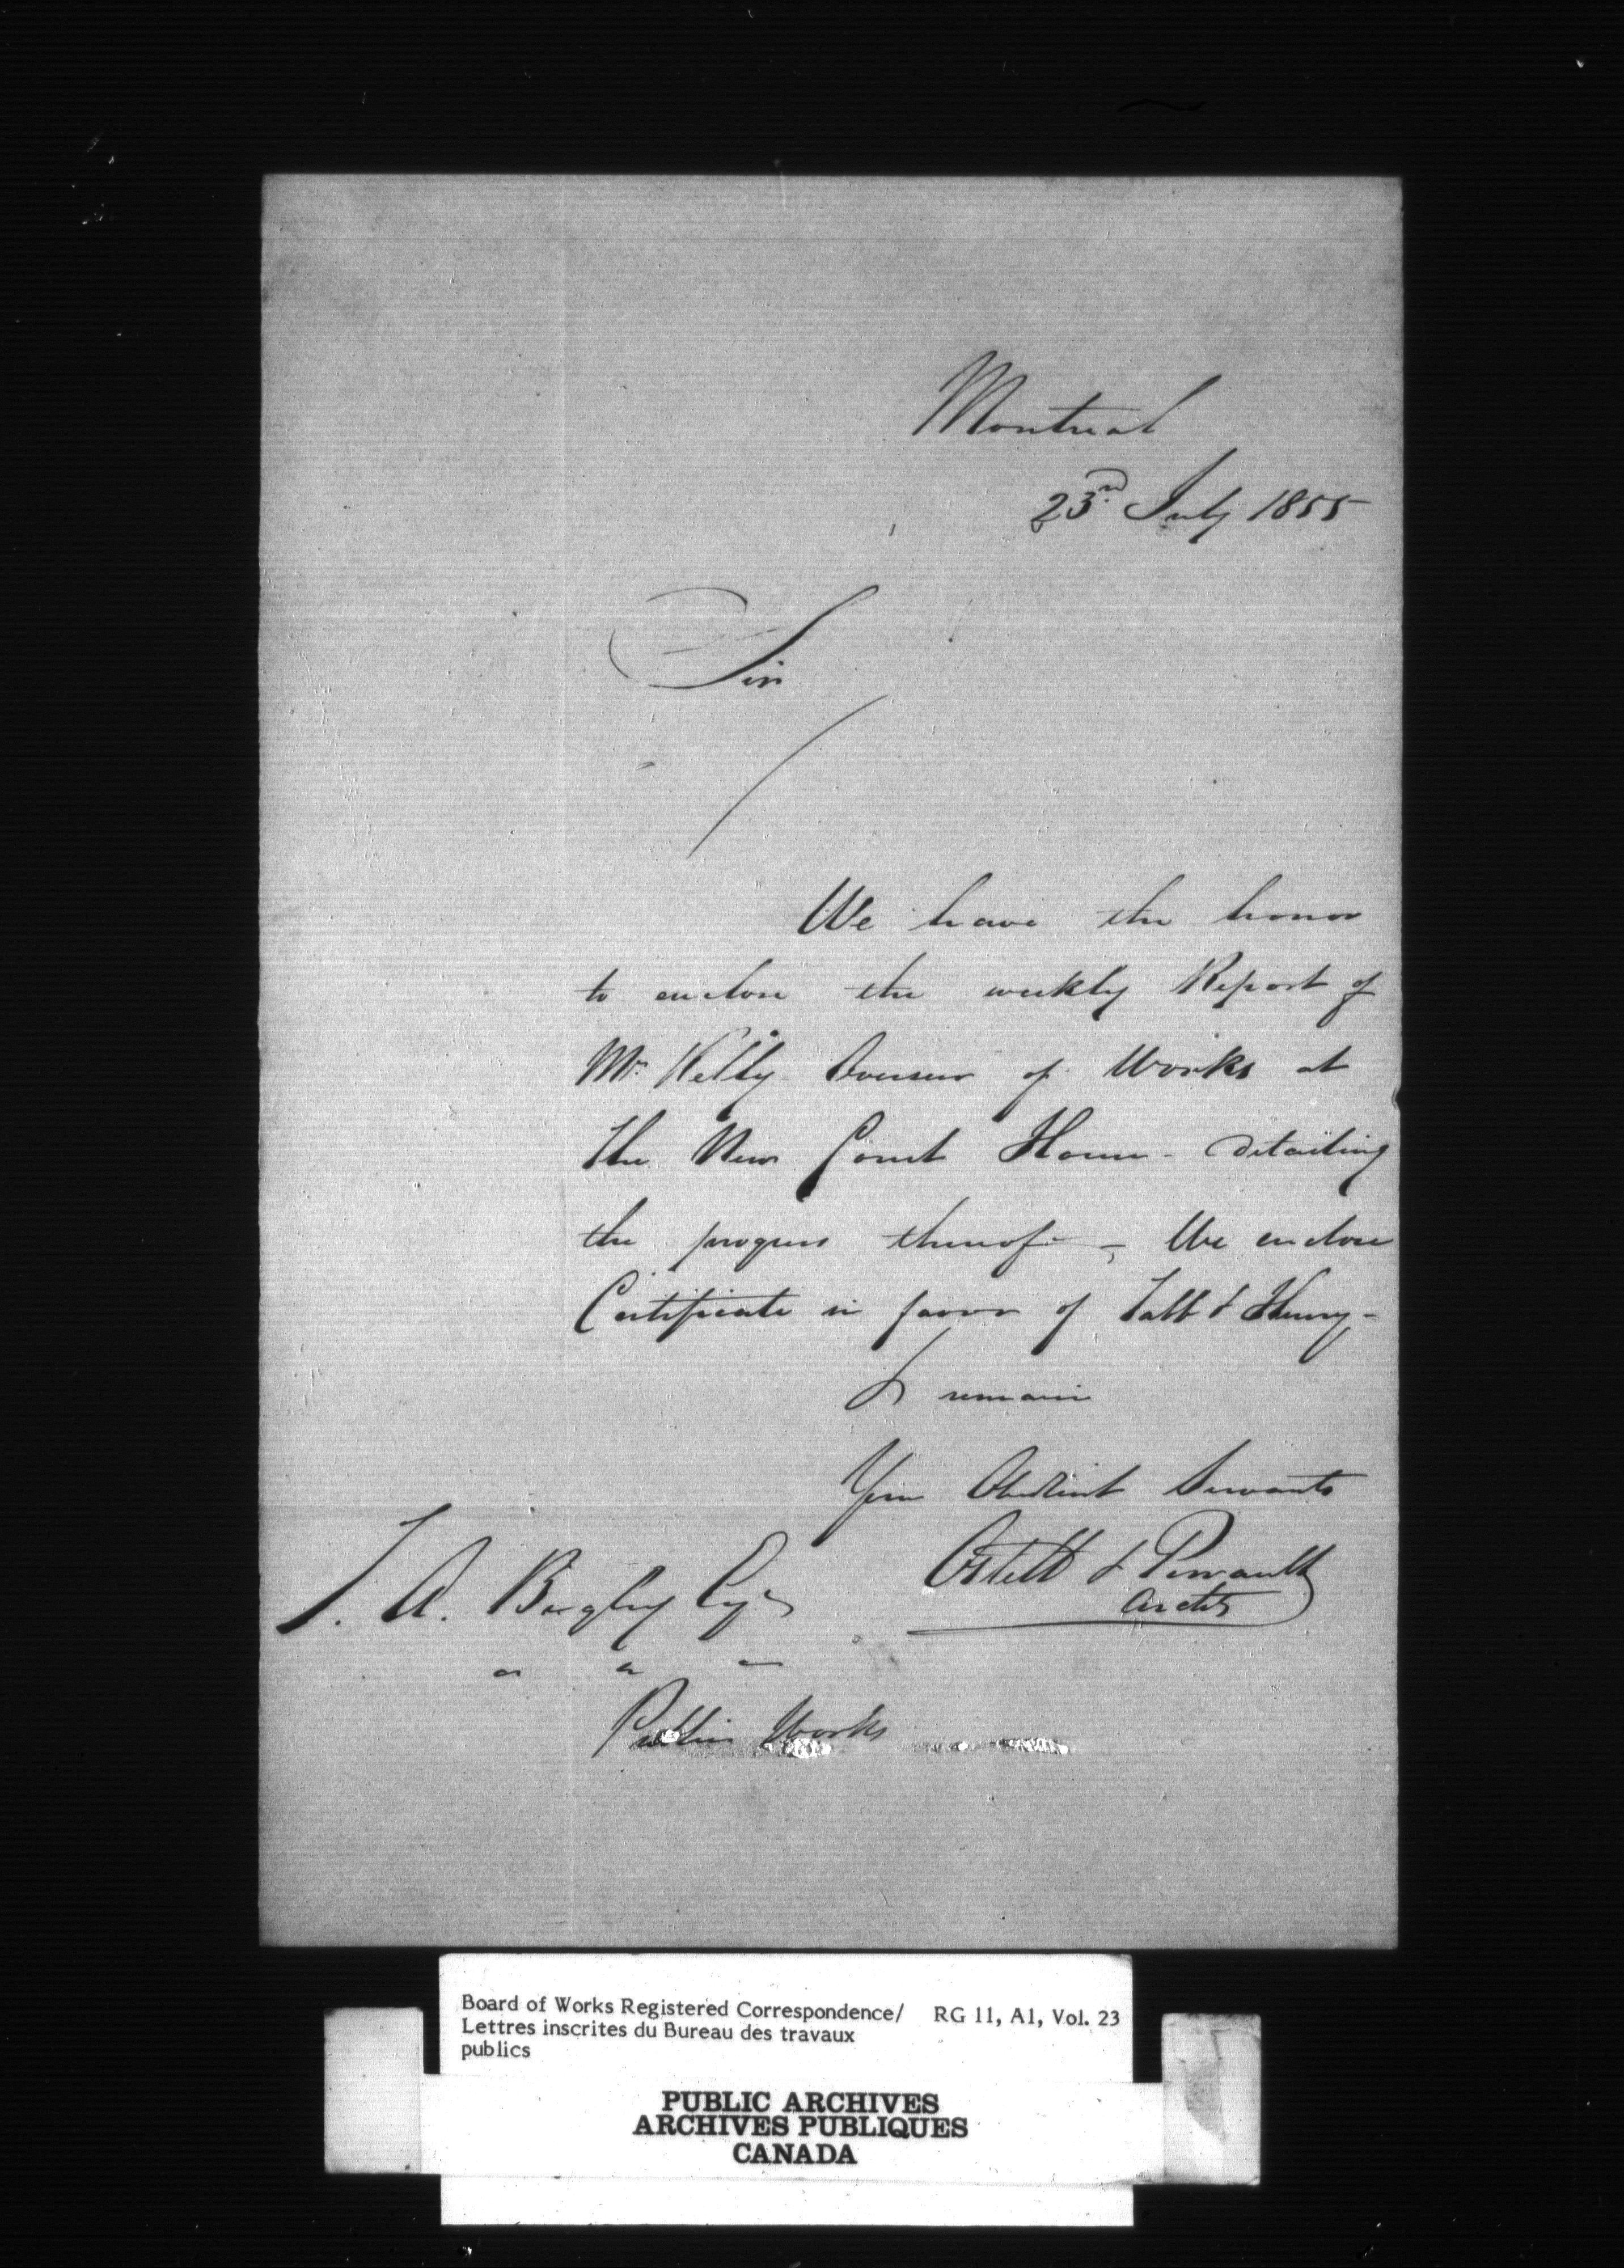 Montreal
23rd July 1855
Sir
We have the honor
to enclose the weekly Report of
Mr Kelly Overseer of Works at
The New Court House - detailing
the progress thereof - We enclose
Certificate in favor of &
& remain
Your Obedient Servants
Ostell & Perrault
Archts
T. A. Begley Esqr
Public Works
Board of Works Registered Correspondence/ RG 11, A1, Vol. 23
Lettres inscrites du Bureau des travaux
publics
PUBLIC ARCHIVES
ARCHIVES PUBLIQUES
CANADA